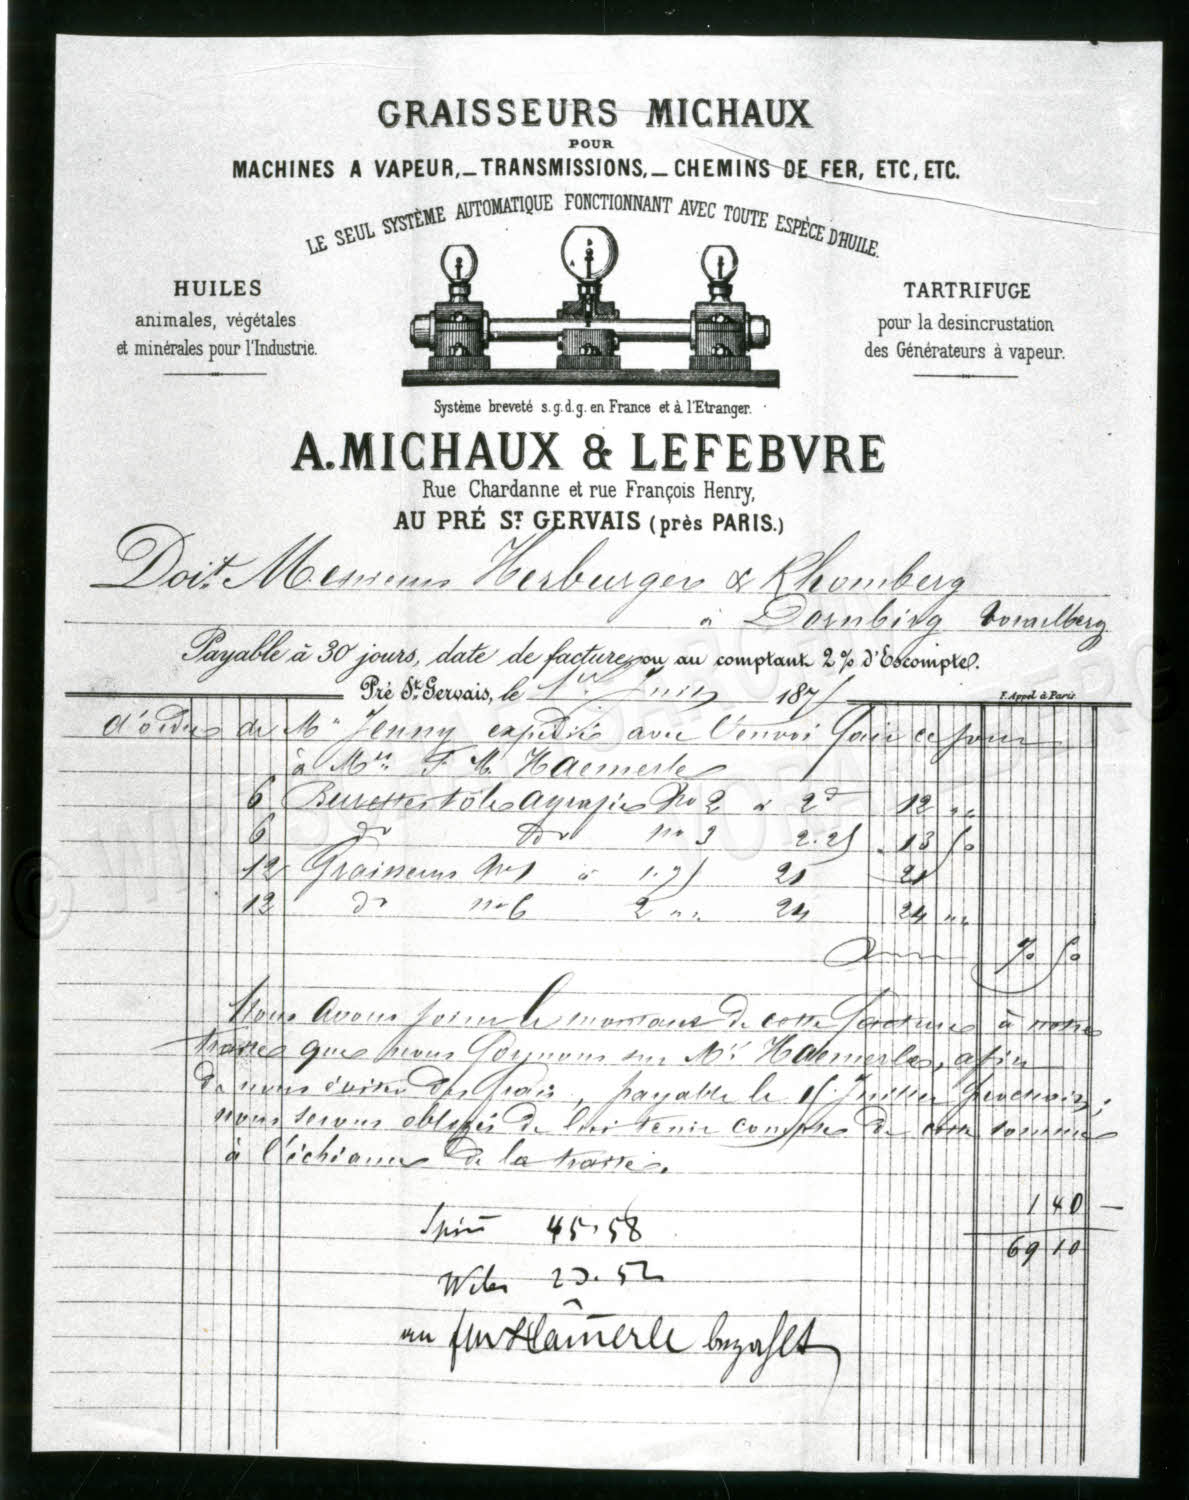 GRAISSEURS MICHAUX
POUR
MACHINES A VAPEUR,_TRANSMISSIONS,_CHEMINS DE FER, ETC, ETC.
LE SEUL SYSTÈME AUTOMATIQUE FONCTIONNANT AVEC TOUTE ESPÈCE D'HUILE.
HUILES
animales, végétales
et minérales pour l'Industrie.
TARTRIFUGE
pour la desincrustation
des Générateurs à vapeur.
Système breveté s.g.d.g. en France et à l'Etranger.
A. MICHAUX & LEFEBVRE
Rue Chardanne et rue François Henry,
AU PRÉ ST GERVAIS (près PARIS.)
Doit Messieurs Herburger & Rhomberg
à Dornbirg Vorarlberg
Payable à 30 jours, date de facture, ou au comptant 2% d'Escompte.
Pré St Gervais, le 1er Juin 1875
F. Appel à Paris
d'ordre de Mr Jenny expédié avec l'envoi fait ce jour
à Mr F. M. Haemerle
6 Burettes tôle agrafée No 2 à 2 12 "
6 do do no 3 2.25 13 50
12 Graisseurs No 1 à 1.75 21 21
12 do no 6 2 " 24 24 "
70 50
Nous avons joint le montant de cette facture à notre
traite que nous fournons sur Mr Haemerle, afin
de nous éviter des frais, payable le 15 Juillet prochain;
nous serons obligés de lui tenir compte de cette somme
à l'échéance de la traite.
1 40 —
69 10
45.58
23.52
an Hämerle bezahlt